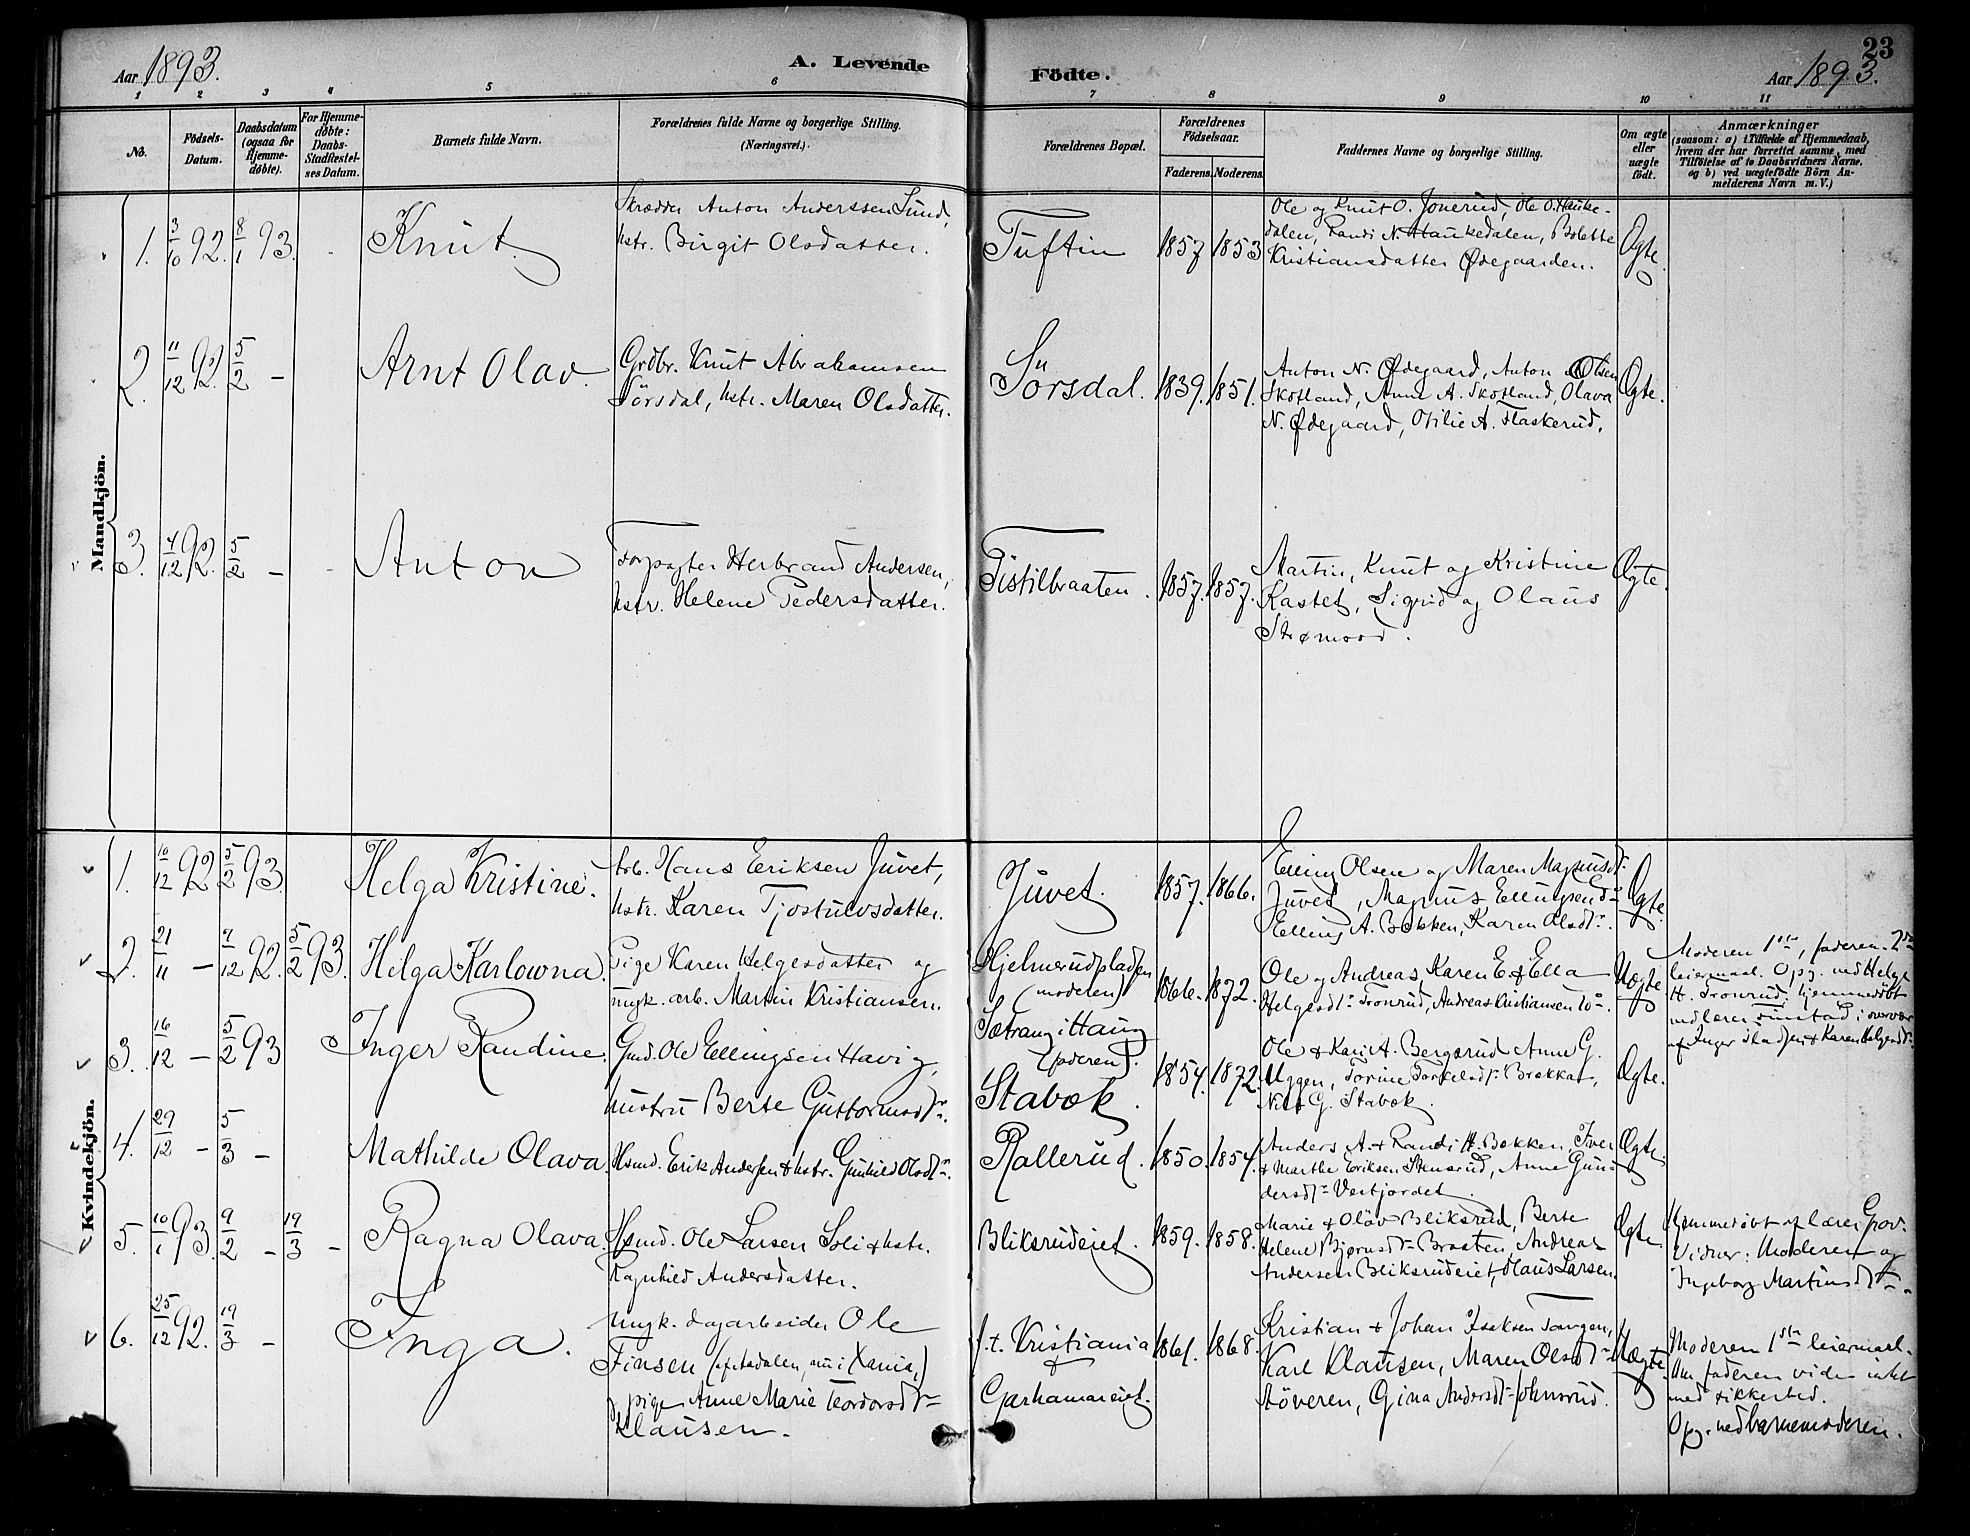 Aar 1893.
A. Levende
Födte.
23
Aar 1893.
1 2 3 4 5 6 7 8 9 10 11
No.
Födsels-Datum.
Daabsdatum (ogsaa for Hjemme-døbte).
For Hjemme-døbte: Daabs-Stadfestel-ses Datum.
Barnets fulde Navn.
Forældrenes fulde Navne og borgerlige Stilling.
(Næringsvei.)
Forældrenes Bopæl.
Forældrenes Födselsaar.
Faderens. Moderens.
Faddernes Navne og borgerlige Stilling.
Om ægte eller uægte födt.
Anmærkninger
(saasom: a) i Tilfælde af Hjemmedaab,
hvem der har forrettet samme, med
Tilföielse af to Daabsvidners Navne.
og b) ved uægtefödte Börn An-
melderens Navn m.V.)
Mandkjön.
1. 3/10 92. 8/1 93. Knut.
Skrædder Anton Anderssen Lund,
hstr. Birgit Olsdatter.
Tuftin 1857 1853
Ole og Knut O. Jonerud, Ole O. Hauke-
dalen, Randi N. Haukedalen, Bolette
Kristiansdatter Ødegaarden.
Ægte.
2. 11/12 92. 5/2 – Arnt Olav.
Grdbr. Knut Abrahamsen
Sörsdal, hstr. Maren Olsdatter.
Sorsdal. 1839. 1851.
Anton N. Ødegaard, Anton Olsen
Skotland, Anne A. Skotland, Olava
N. Ødegaard, Otilie A. Flaskerud.
Ægte.
3. 4/12 92. 5/2 – Anton
Forpagter Herbrand Andersen,
hstr. Helene Pedersdatter.
Tistilbraaten. 1857. 1857.
Martin, Knut og Kristine
Kastet, Sigrid og Olaus
Ægte.
Kvindekjön.
1. 10/12 92 5/2 93. Helga Kristine.
Arb. Hans Eriksen Juvet,
hstr. Karen Tjostulvsdatter.
Juvet. 1857. 1866.
Elling Olsen og Maren Magnusdr.
Juvet, Magnus Ellingsen
Elling A. Bakken, Karen Olsdr.
Ægte.
2. 21/11 – 7/12 92. 5/2 93. Helga Karlowna.
Pige Karen Helgesdatter og
ungk. arb. Martin Kristiansen.
Hjelmerudpladsen
(moderen)
Sætrang i Haug
(faderen).
1866. 1872.
Ole og Andreas Karen E & Ella
Helgesdr. Tronrud, Andreas Kristiansen
Uægte
Moderen 1ste, faderen 2det
leiermaal. Opg. ved Helge
H. Tronrud. Hjemmedøbt
ved lærer i overvær
af Inger & Karen Helgesdr.
3. 16/12 – 5/2 93 Inger Randine.
Gmd. Ole Ellingsen Havig,
hustru Berte Guttormsdr.
Stabæk. 1854. 1872.
Ole & Kari A. Bergsrud Anne G.
Uggen, Torine Torkelsdr. Brakka,
Nils G. Stabæk.
Ægte.
4. 29/12 – 5/3 – Mathilde Olava
Hsmd. Erik Andersen & hstr. Gunhild Olsdr.
Rallerud. 1850. 1854.
Anders A. & Randi H. Bakken Iver
& Marthe Eriksen Stensrud, Anne Gun-
dersdr. Vestjordet.
Ægte.
5. 10/1 93. 9/2 – 19/3 – Ragna Olava.
Hsmd. Ole Larsen Soli & hstr.
Ragnhild Andersdatter.
Bliksrudeiet. 1859. 1858.
Marie & Olav Bliksrud, Berte
Helene Bjørnsdr. Braaten, Andreas
Andersen Bliksrudeiet, Olaus Larsen.
Ægte
Hjemmedøbt af lærer Grov.
Vidner: Moderen og
Ingeborg Martinsdr.
6. 25/12 92. 19/3 – Inga.
Ungk. dagarbeider Ole
Finsen (af Aadalen, nu i Xania,)
& pige Anne Marie Teodorsdr.
Klausen.
f.t. Kristiania
&
Garhamareiet.
1861. 1868.
Kristian & Johan Isaksen Tangen,
Karl Klausen, Maren Olsdr.
Støveren, Gina Andersdr. Johnsrud.
Uægte
Moderen 1ste leiermaal.
Om faderen vides intet
med sikkerhed.
Opg. ved barnemoderen.